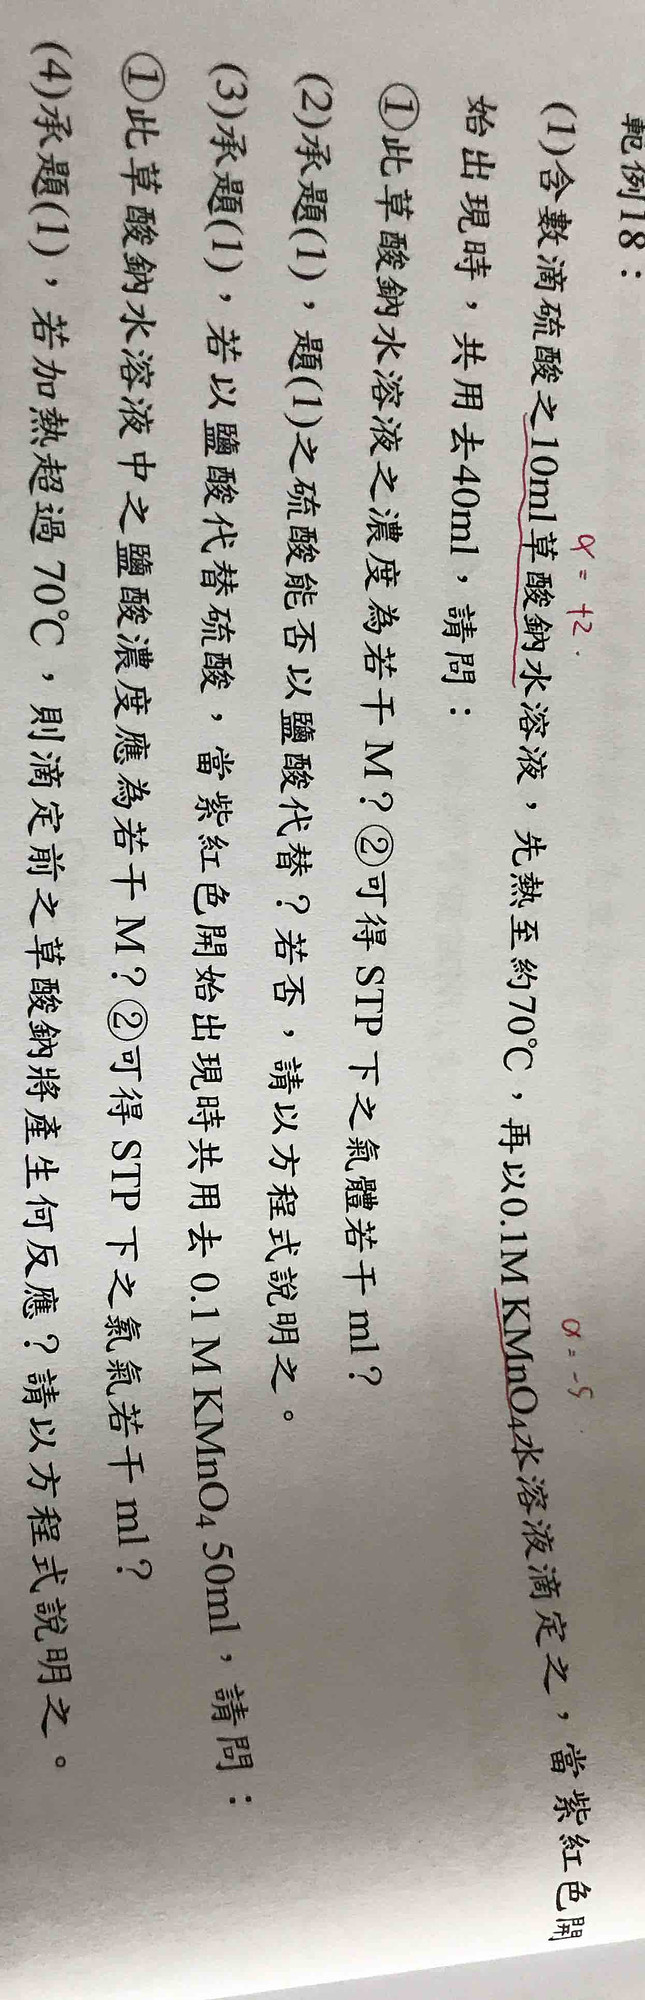 範例18：
α = +2.
α = -5
(1)含數滴硫酸之10ml草酸鈉水溶液，先熱至約70℃，再以0.1M KMnO₄水溶液滴定之，當紫紅色開
始出現時，共用去40ml，請問：
①此草酸鈉水溶液之濃度為若干M？②可得STP下之氣體若干ml？
(2)承題(1)，題(1)之硫酸能否以鹽酸代替？若否，請以方程式說明之。
(3)承題(1)，若以鹽酸代替硫酸，當紫紅色開始出現時共用去0.1M KMnO₄ 50ml，請問：
①此草酸鈉水溶液中之鹽酸濃度應為若干M？②可得STP下之氯氣若干ml？
(4)承題(1)，若加熱超過70℃，則滴定前之草酸鈉將產生何反應？請以方程式說明之。